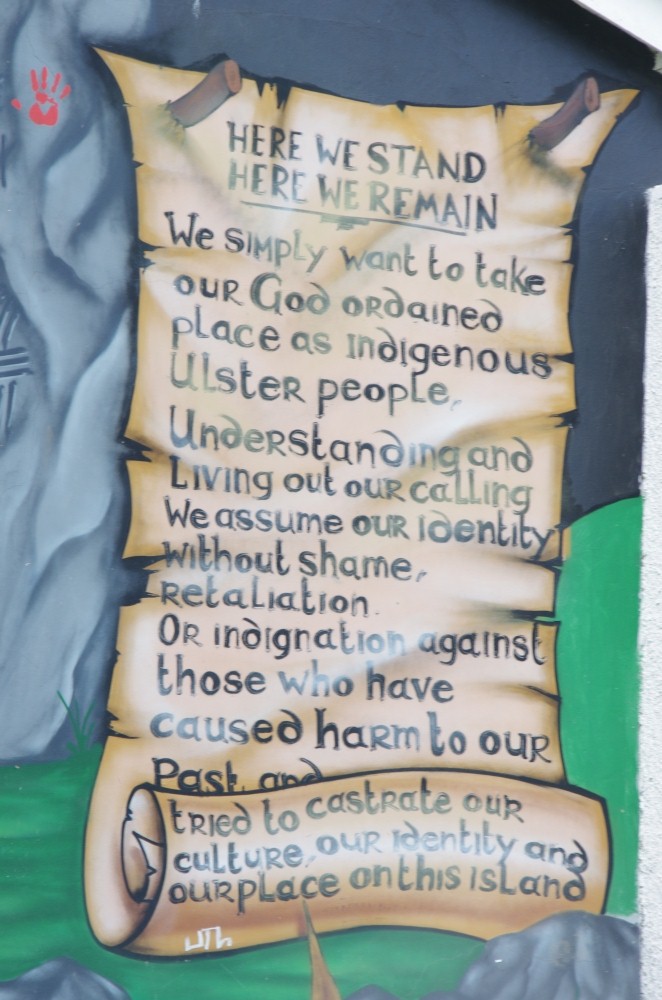 HERE WE STAND
HERE WE REMAIN
We simply want to take
our God ordained
place as indigenous
Ulster people,
Understanding and
Living out our calling
We assume our identity
without shame,
retaliation.
Or indignation against
those who have
caused harm to our
Past, and
tried to castrate our
culture, our identity and
our place on this island